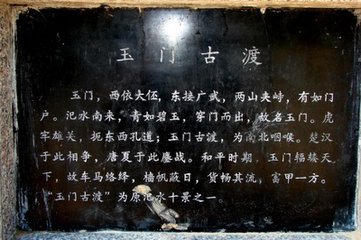 玉门古渡
玉门，西依大伾，东接广武，两山夹峙，有如门
户。汜水南来，青如碧玉，穿门而出，故名玉门。虎
牢雄关，扼东西孔道；玉门古渡，为南北咽喉。楚汉
于此相争，唐夏于此鏖战。和平时期，玉门辐辏天
下，故车马络绎，樯帆蔽日，货畅其流，富甲一方。
“玉门古渡”为原汜水十景之一。